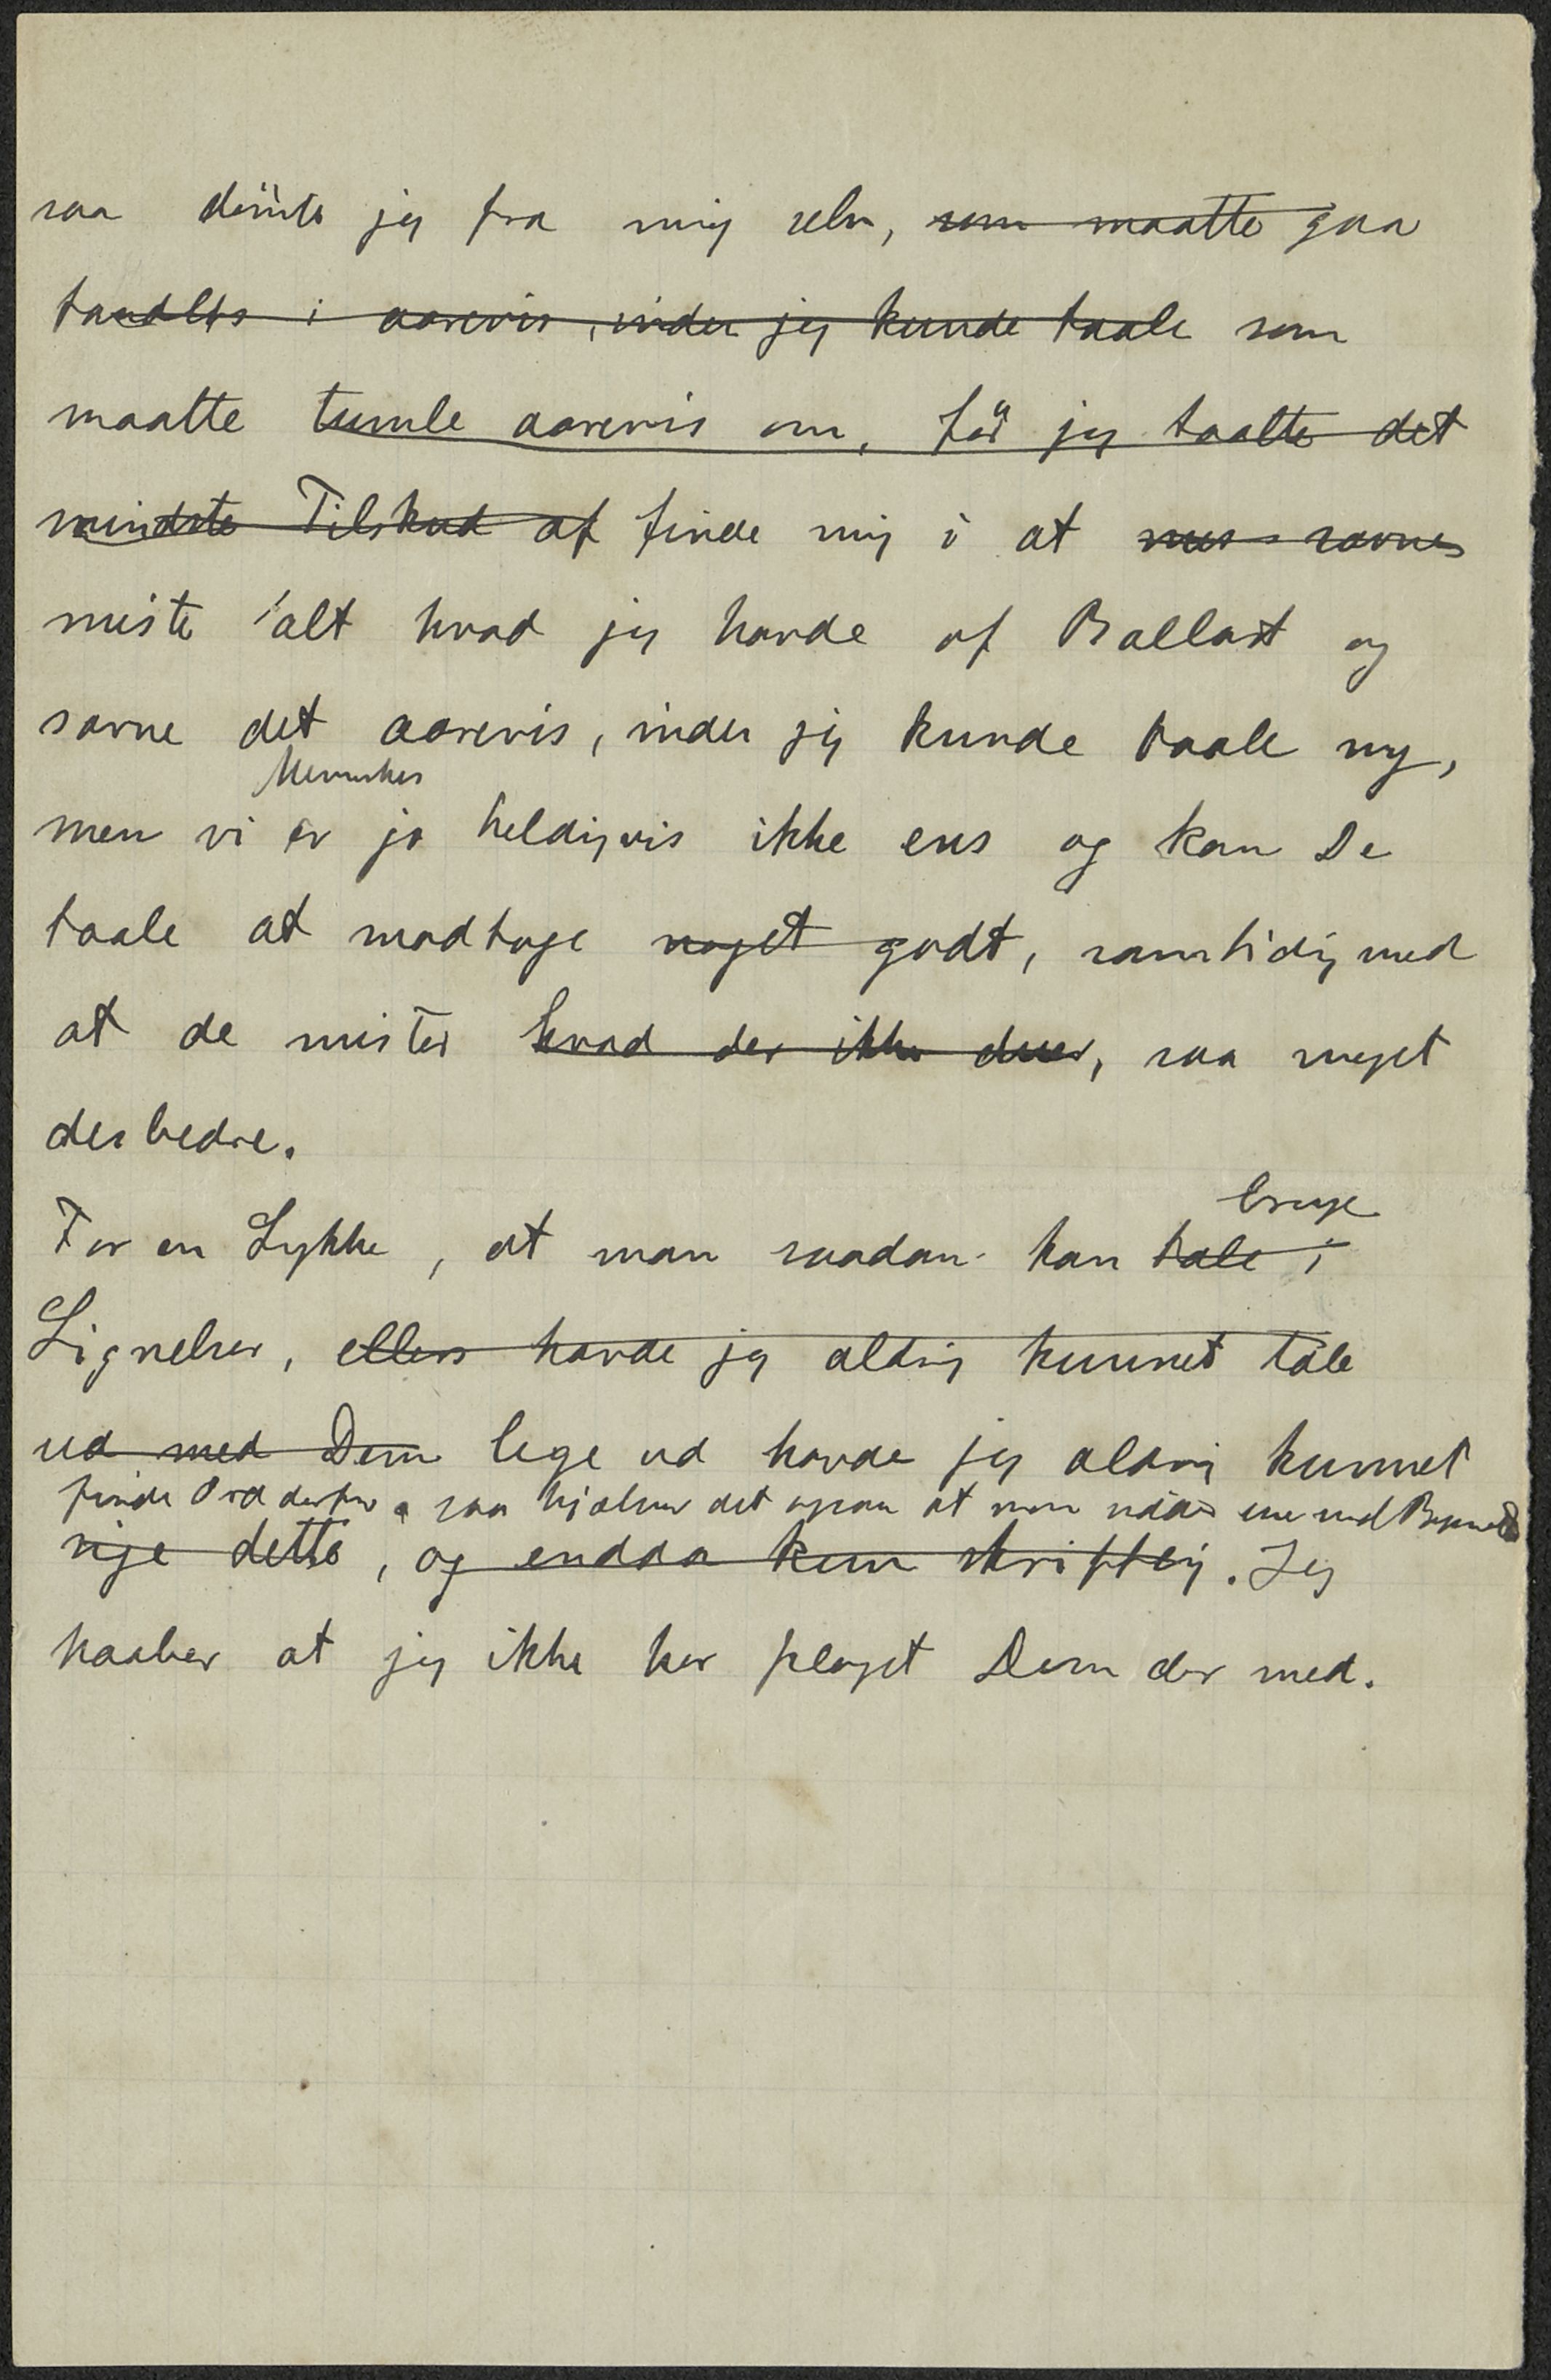 saa dömte jeg fra mig selv, som maatte gaa
tandlös i aarevis, inden jeg kunde taale som
maatte tumle aarevis om, för jeg taalte det
mindste Tilskud af finde mig i at savne
miste alt hvad jeg havde af Ballast og
savne det aarevis, inden jeg kunde taale ny,
Mennesker
men vi er jo heldigvis ikke ens og kan De
taale at modtage noget godt, samtidig med
at de mister hvad der ikke duer, saa meget
des bedre.
bruge
For en Lykke, at man saadan kan tale i
Lignelser, ellers havde jeg aldrig kunnet tale
ud med Dem lige ud havde jeg aldrig kunnet
finde Ord derfor saa hjælper det ogsaa at man ene med
sige dette, og endda kun skriftlig. Jeg
haaber at jeg ikke har plaget Dem der med.